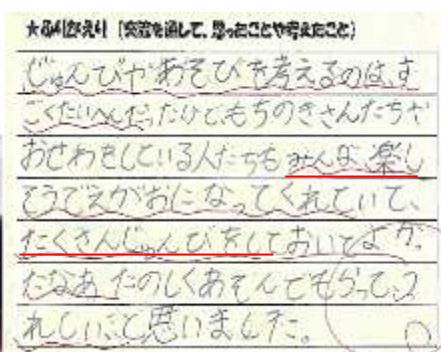 ★ふりかえり（交流を通して、思ったことや考えたこと）
じゅんびやあそびを考えるのは、す
ごくたいへんだったけどもちのきさんたちや
おせわをしている人たちもみんな、楽し
そうでえがおになってくれていて、
たくさんじゅんびをしておいてよか
たなあ、たのしくあそんでもらって、う
れしいと思いました。